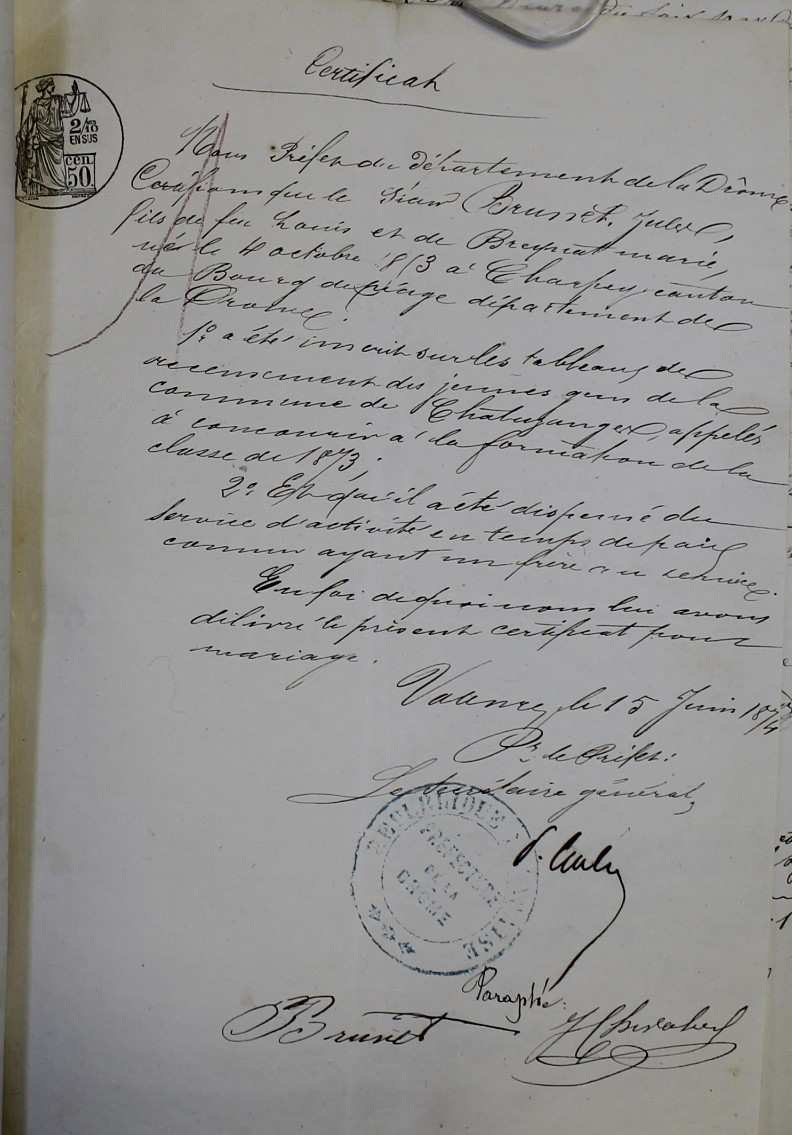 Certificat
2/10
EN SUS
50 cen
Nous Préfet du département de la Drôme
Certifions que le Sieur Brusset, Jules,
fils de feu Louis et de Breynat marie,
né le 4 octobre 1853 à Charpey, canton
du Bourg de péage département de
la Drome.
1º a été inscrit sur les tableaux de
recensement des jeunes gens de la
commune de Chatuzange, appelés
à concourir à la formation de la
classe de 1873;
2º Et qu'il a été dispensé du
service d'activité en temps de paix
comme ayant un frère au service.
En foi de quoi nous lui avons
délivré le présent certificat pour
mariage.
Valence, le 15 Juin 1874
Pr le Préfet:
Le Secrétaire général,
REPUBLIQUE FRANCAISE
PREFECTURE
DE LA
DROME
Paraphé: